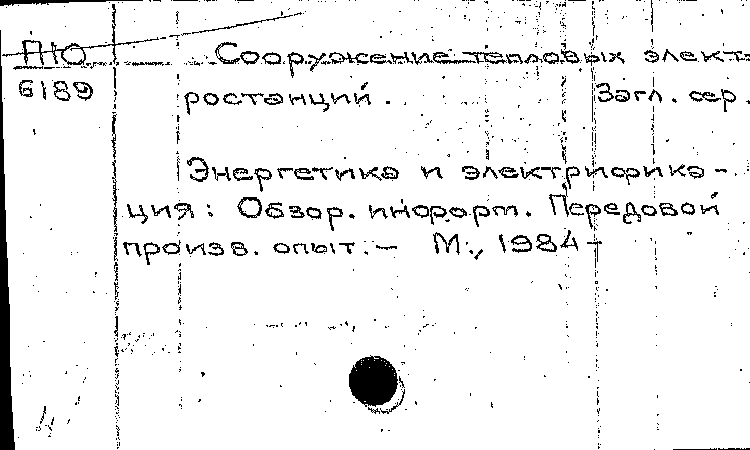 П10 Сооружение тепловых элект-
6189 ростанций. Загл. сер.
Энергетика и электрифика-
ция: Обзор. информ. Передовой
произв. опыт.– М., 1984–